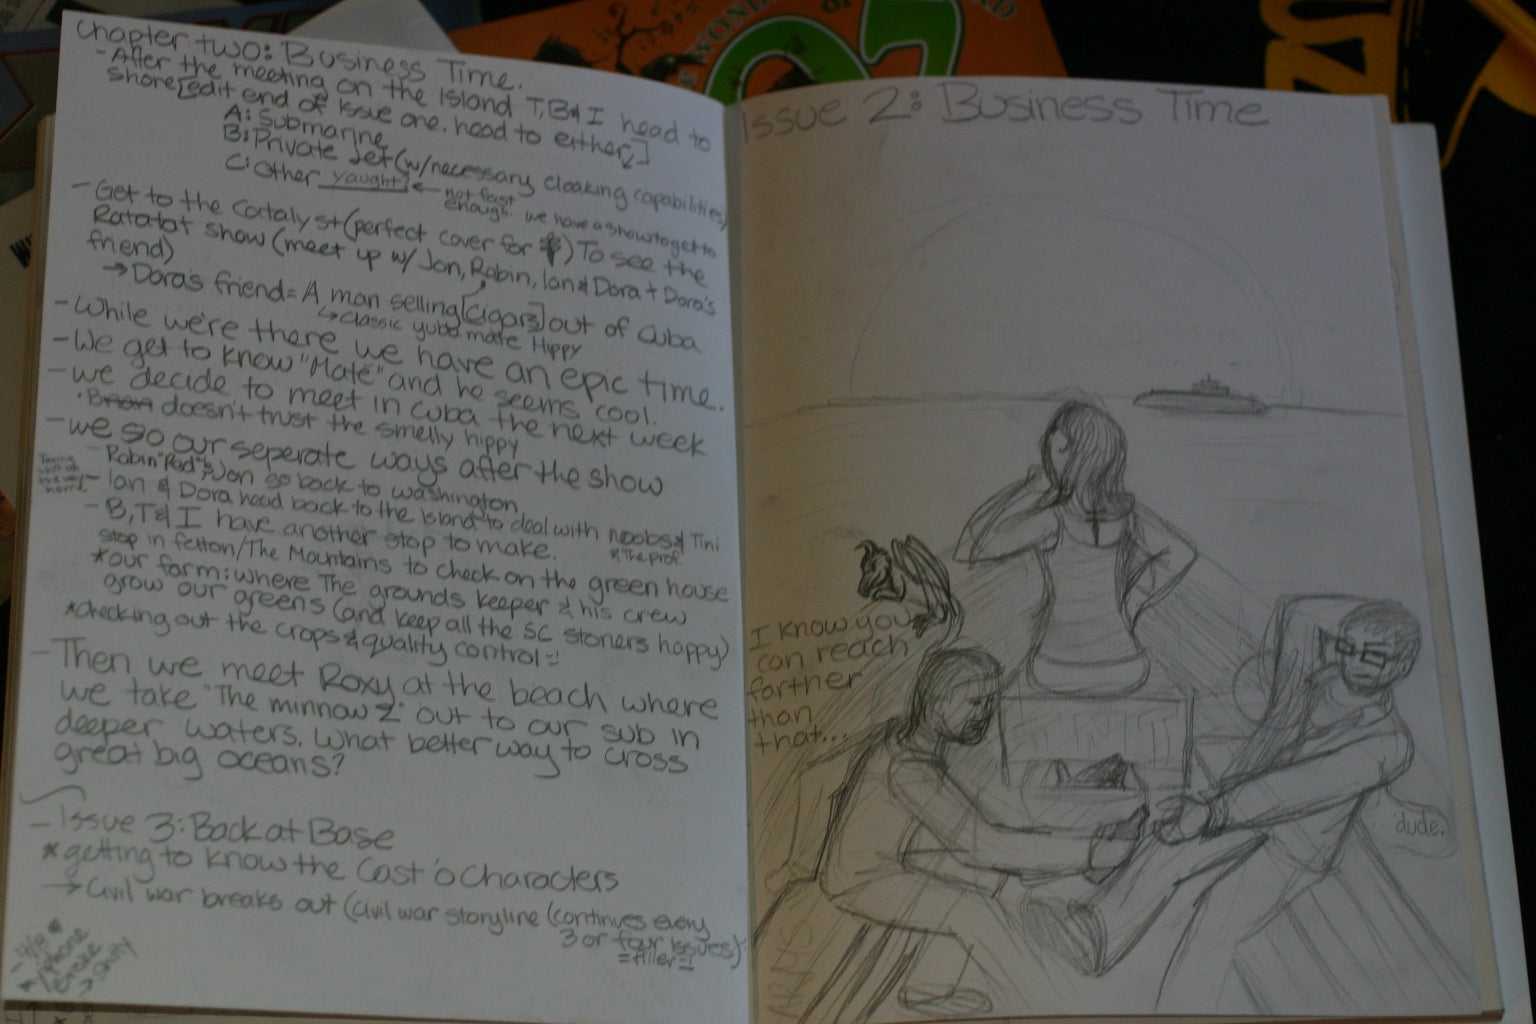 Chapter two: Business Time.
- After the meeting on the island T, B & I head to
shore [edit end of issue one. head to either]
A: Submarine
B: Private Jet (w/necessary cloaking capabilities)
C: Other yaught? ← not fast enough. we have a show to get to
- Get to the Catalyst (perfect cover for) To see the
Ratatat show (meet up w/ Jon, Robin, Ian & Dora + Dora's
friend)
→ Dora's friend = A man selling [cigars] out of Cuba
↳ classic yuba mate Hippy
- While we're there we have an epic time.
- We get to know "Maté" and he seems cool.
- we decide to meet in Cuba the next week
• Brian doesn't trust the smelly hippy
- we go our seperate ways after the show
- Robin "Rad" & Jon go back to washington
- Ian & Dora head back to the island to deal with noobs & Tini
& The prof.
- B, T & I have another stop to make.
stop in felton/The Mountains to check on the green house
* our farm: where The grounds keeper & his crew
grow our greens (and keep all the SC stoners happy)
* checking out the crops & quality control =!
- Then we meet Roxy at the beach where
we take "The minnow 2" out to our sub in
deeper waters. What better way to cross
great big oceans?
- Issue 3: Back at Base
* getting to know the Cast o' Characters
→ Civil war breaks out (civil war storyline (continues every
3 or four issues)
= filler =!
iphone
Issue 2: Business Time
I know you
can reach
farther
than
that...
...dude.